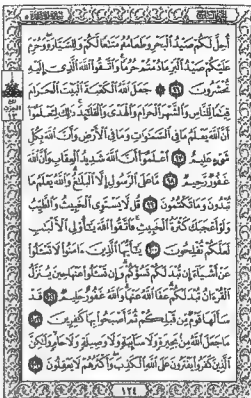 أُحِلَّ لَكُمْ صَيْدُ الْبَحْرِ وَطَعَامُهُ مَتَاعًا لَكُمْ وَلِلسَّيَّارَةِ وَحُرِّمَ
عَلَيْكُمْ صَيْدُ الْبَرِّ مَا دُمْتُمْ حُرُمًا وَاتَّقُوا اللَّهَ الَّذِي إِلَيْهِ
تُحْشَرُونَ ٩٦ جَعَلَ اللَّهُ الْكَعْبَةَ الْبَيْتَ الْحَرَامَ
قِيَامًا لِلنَّاسِ وَالشَّهْرَ الْحَرَامَ وَالْهَدْيَ وَالْقَلَائِدَ ذَٰلِكَ لِتَعْلَمُوا
أَنَّ اللَّهَ يَعْلَمُ مَا فِي السَّمَاوَاتِ وَمَا فِي الْأَرْضِ وَأَنَّ اللَّهَ بِكُلِّ
شَيْءٍ عَلِيمٌ ٩٧ اعْلَمُوا أَنَّ اللَّهَ شَدِيدُ الْعِقَابِ وَأَنَّ اللَّهَ
غَفُورٌ رَحِيمٌ ٩٨ مَا عَلَى الرَّسُولِ إِلَّا الْبَلَاغُ وَاللَّهُ يَعْلَمُ مَا
تُبْدُونَ وَمَا تَكْتُمُونَ ٩٩ قُلْ لَا يَسْتَوِي الْخَبِيثُ وَالطَّيِّبُ
وَلَوْ أَعْجَبَكَ كَثْرَةُ الْخَبِيثِ فَاتَّقُوا اللَّهَ يَا أُولِي الْأَلْبَابِ
لَعَلَّكُمْ تُفْلِحُونَ ١٠٠ يَا أَيُّهَا الَّذِينَ آمَنُوا لَا تَسْأَلُوا
عَنْ أَشْيَاءَ إِنْ تُبْدَ لَكُمْ تَسُؤْكُمْ وَإِنْ تَسْأَلُوا عَنْهَا حِينَ يُنَزَّلُ
الْقُرْآنُ تُبْدَ لَكُمْ عَفَا اللَّهُ عَنْهَا وَاللَّهُ غَفُورٌ حَلِيمٌ ١٠١ قَدْ
سَأَلَهَا قَوْمٌ مِنْ قَبْلِكُمْ ثُمَّ أَصْبَحُوا بِهَا كَافِرِينَ ١٠٢
مَا جَعَلَ اللَّهُ مِنْ بَحِيرَةٍ وَلَا سَائِبَةٍ وَلَا وَصِيلَةٍ وَلَا حَامٍ وَلَٰكِنَّ
الَّذِينَ كَفَرُوا يَفْتَرُونَ عَلَى اللَّهِ الْكَذِبَ وَأَكْثَرُهُمْ لَا يَعْقِلُونَ ١٠٣
١٢٤